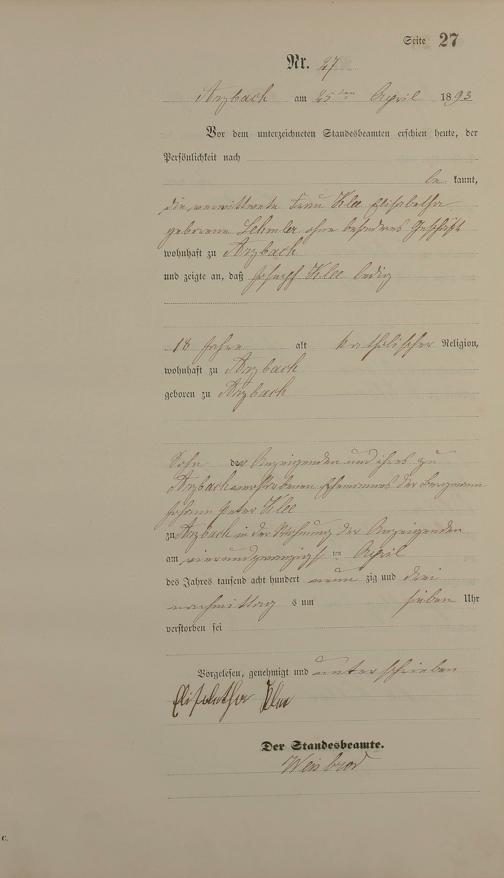 Seite 27
Nr. 27
Arzbach am 25ten April 1893
Vor dem unterzeichneten Standesbeamten erschien heute, der
Persönlichkeit nach
be kannt,
die verwittwete Frau Klee Elisabetha
geborene Lehmler ohne besonderes Geschäft
wohnhaft zu Arzbach
und zeigte an, daß Joseph Klee ledig
18 Jahre alt katholischer Religion,
wohnhaft zu Arzbach
geboren zu Arzbach
Sohn der Anzeigenden und ihres zu
Arzbach verstorbenen Ehemannes der Bergmann
Johann Peter Klee
zu Arzbach in der Wohnung der Anzeigenden
am vierundzwanzigsten April
des Jahres tausend acht hundert neun zig und drei
nachmittag s um sieben Uhr
verstorben sei
Vorgelesen, genehmigt und unterschrieben
Elisabetha Klee
Der Standesbeamte.
Weisbrod
c.